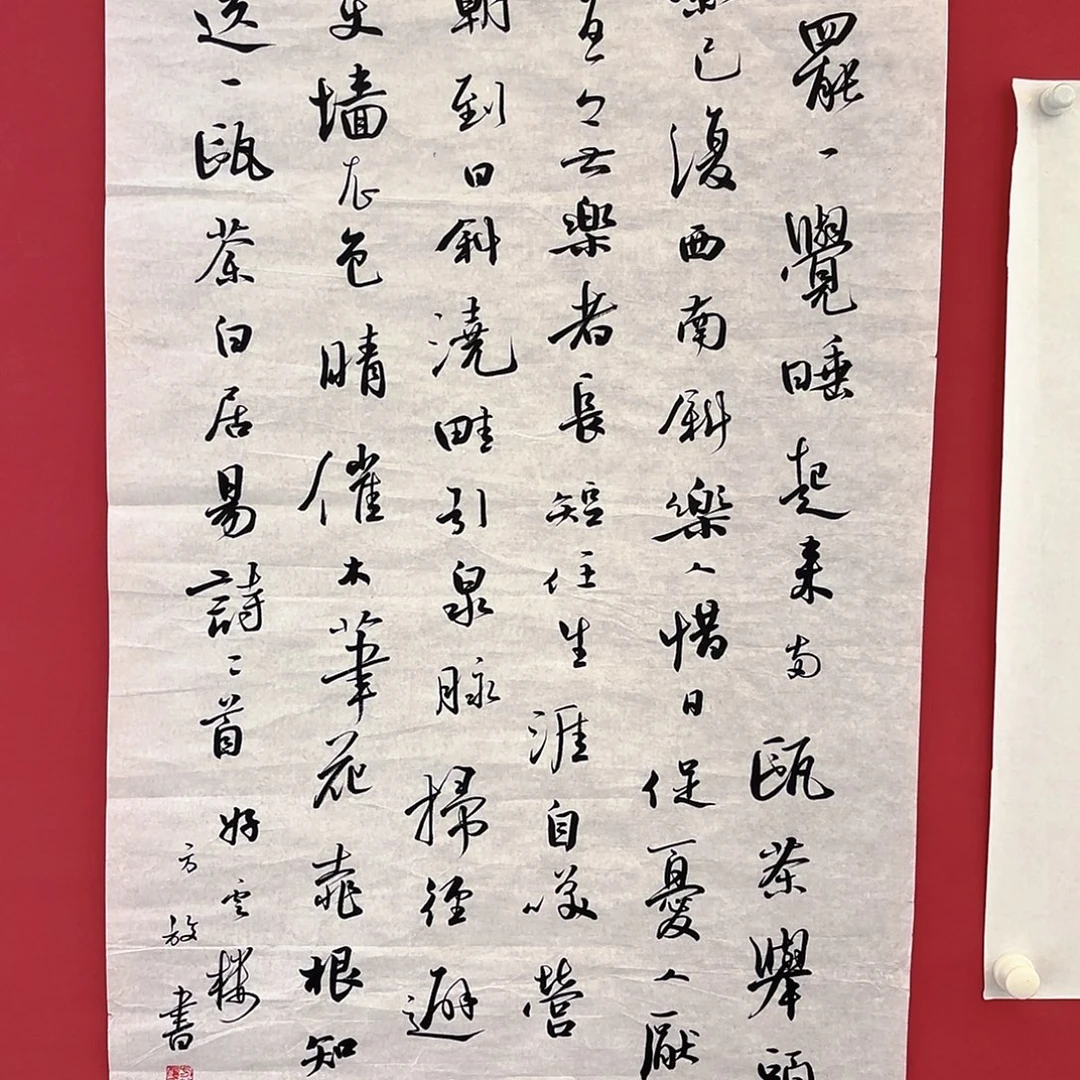 罷一覺睡起來兩甌茶舉頭
已復西南斜樂人惜日促憂人厭
樂者長短任生涯自咲營
朝到日斜澆畦引泉脉掃徑避
变墙衣色晴催木筆花桃根知
送一甌茶白居易詩二首 好雲楼
方放書